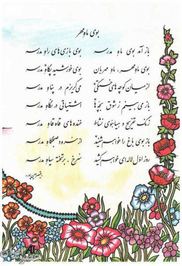 بوی ماه مهر
باز آمد بوی ماه مدرسه
بوی بازی‌های راه مدرسه
بوی ماه مهر، ماه مهربان
بوی خورشید پگاه مدرسه
از میان کوچه‌های خستگی
می‌گریزم در پناه مدرسه
باز می‌بینم ز شوق بچه‌ها
اشتیاقی در نگاه مدرسه
زنگ تفریح و هیاهوی نشاط
خنده‌های قاه قاه مدرسه
باز بوی باغ را خواهم شنید
از سرود صبحگاه مدرسه
روز اول لاله‌ای خواهم کشید
سرخ، بر تخته سیاه مدرسه